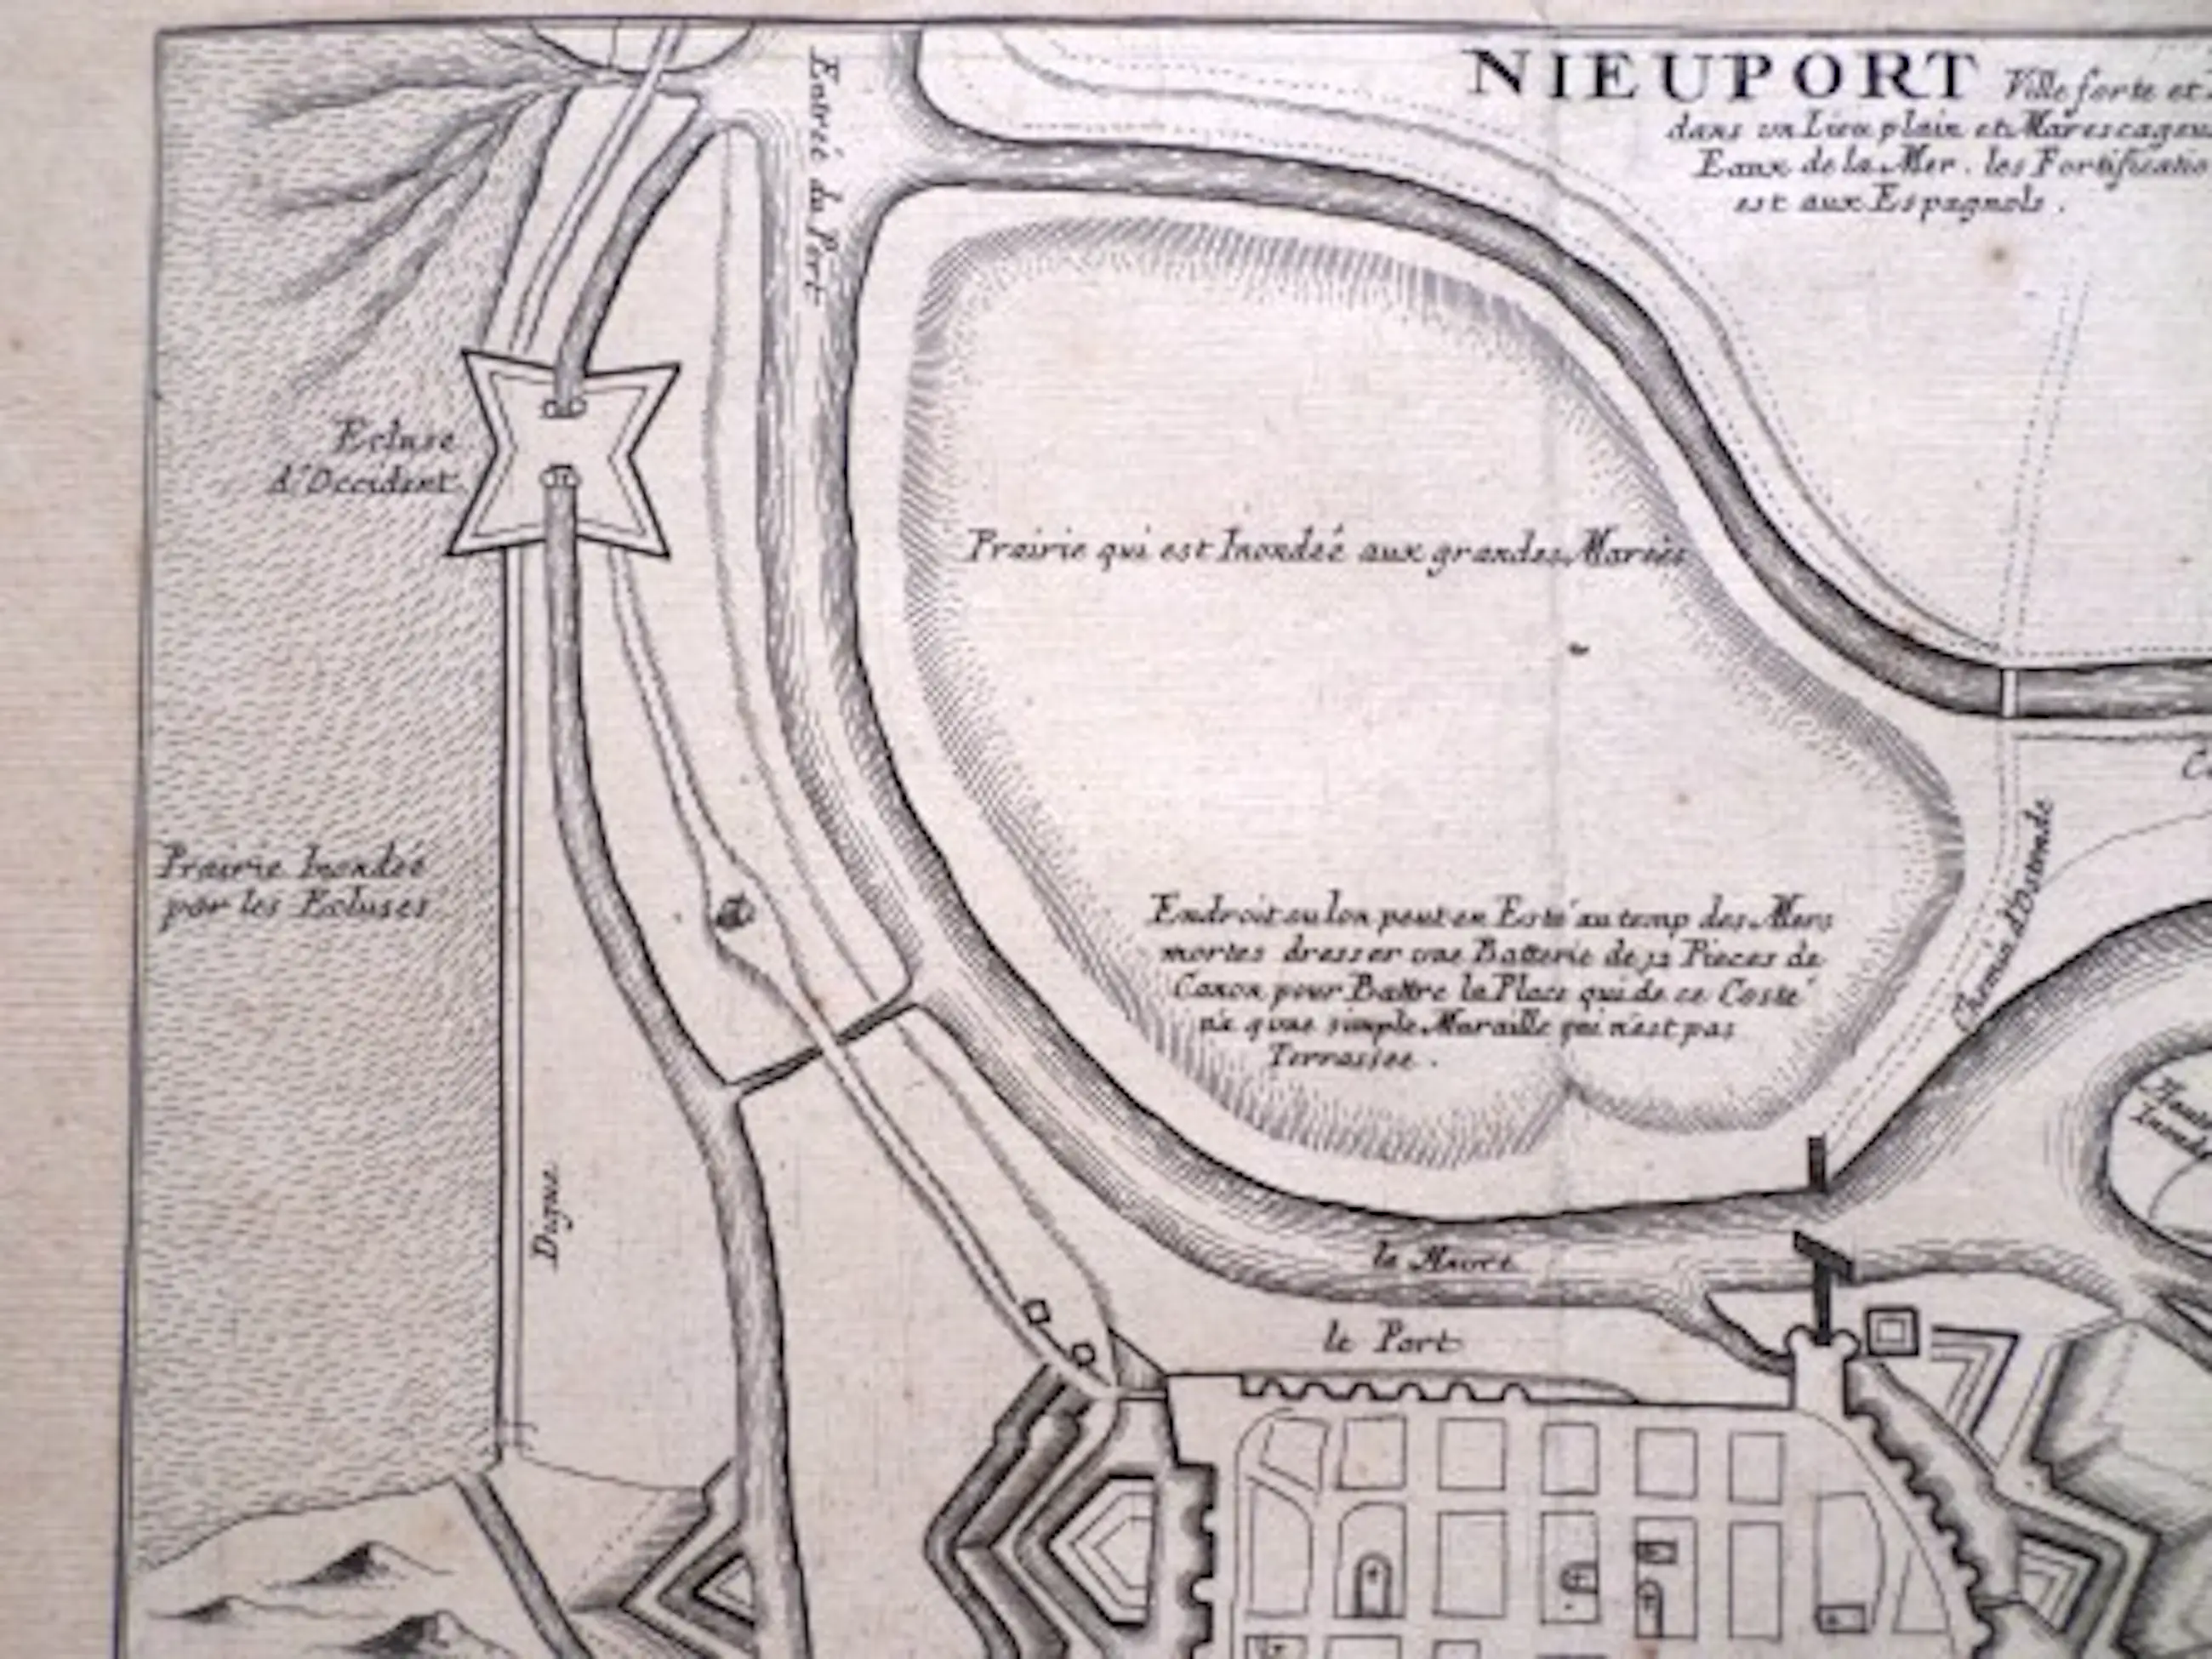 NIEUPORT Ville forte et
dans un Lieu plain et Marescageu
Eaux de la Mer. les Fortificatio
est aux Espagnols.
Entrée du Port
Ecluse
d'Occident
Prairie qui est Inondeé aux grandes Mareés
Prairie Inondeé
par les Ecluses
Endroit ou lon peut en Esté au temp des Mers
mortes dresser une Batterie de 12 Pieces de
Canon pour Battre la Place qui de ce Costé
n'a q'une simple Muraille qui n'est pas
Terrassee.
Chemin d'Ostende
Digue
le Havre
le Port